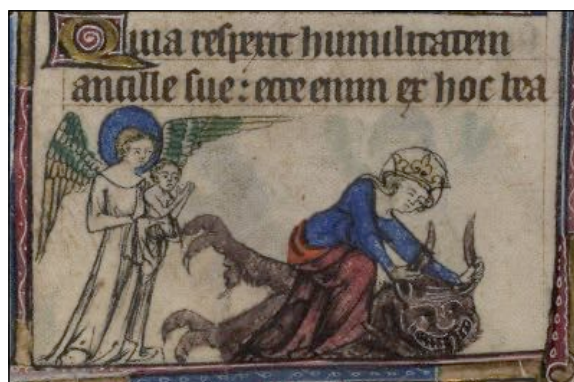 Quia respexit humilitatem
ancille sue: ecce enim ex hoc bea